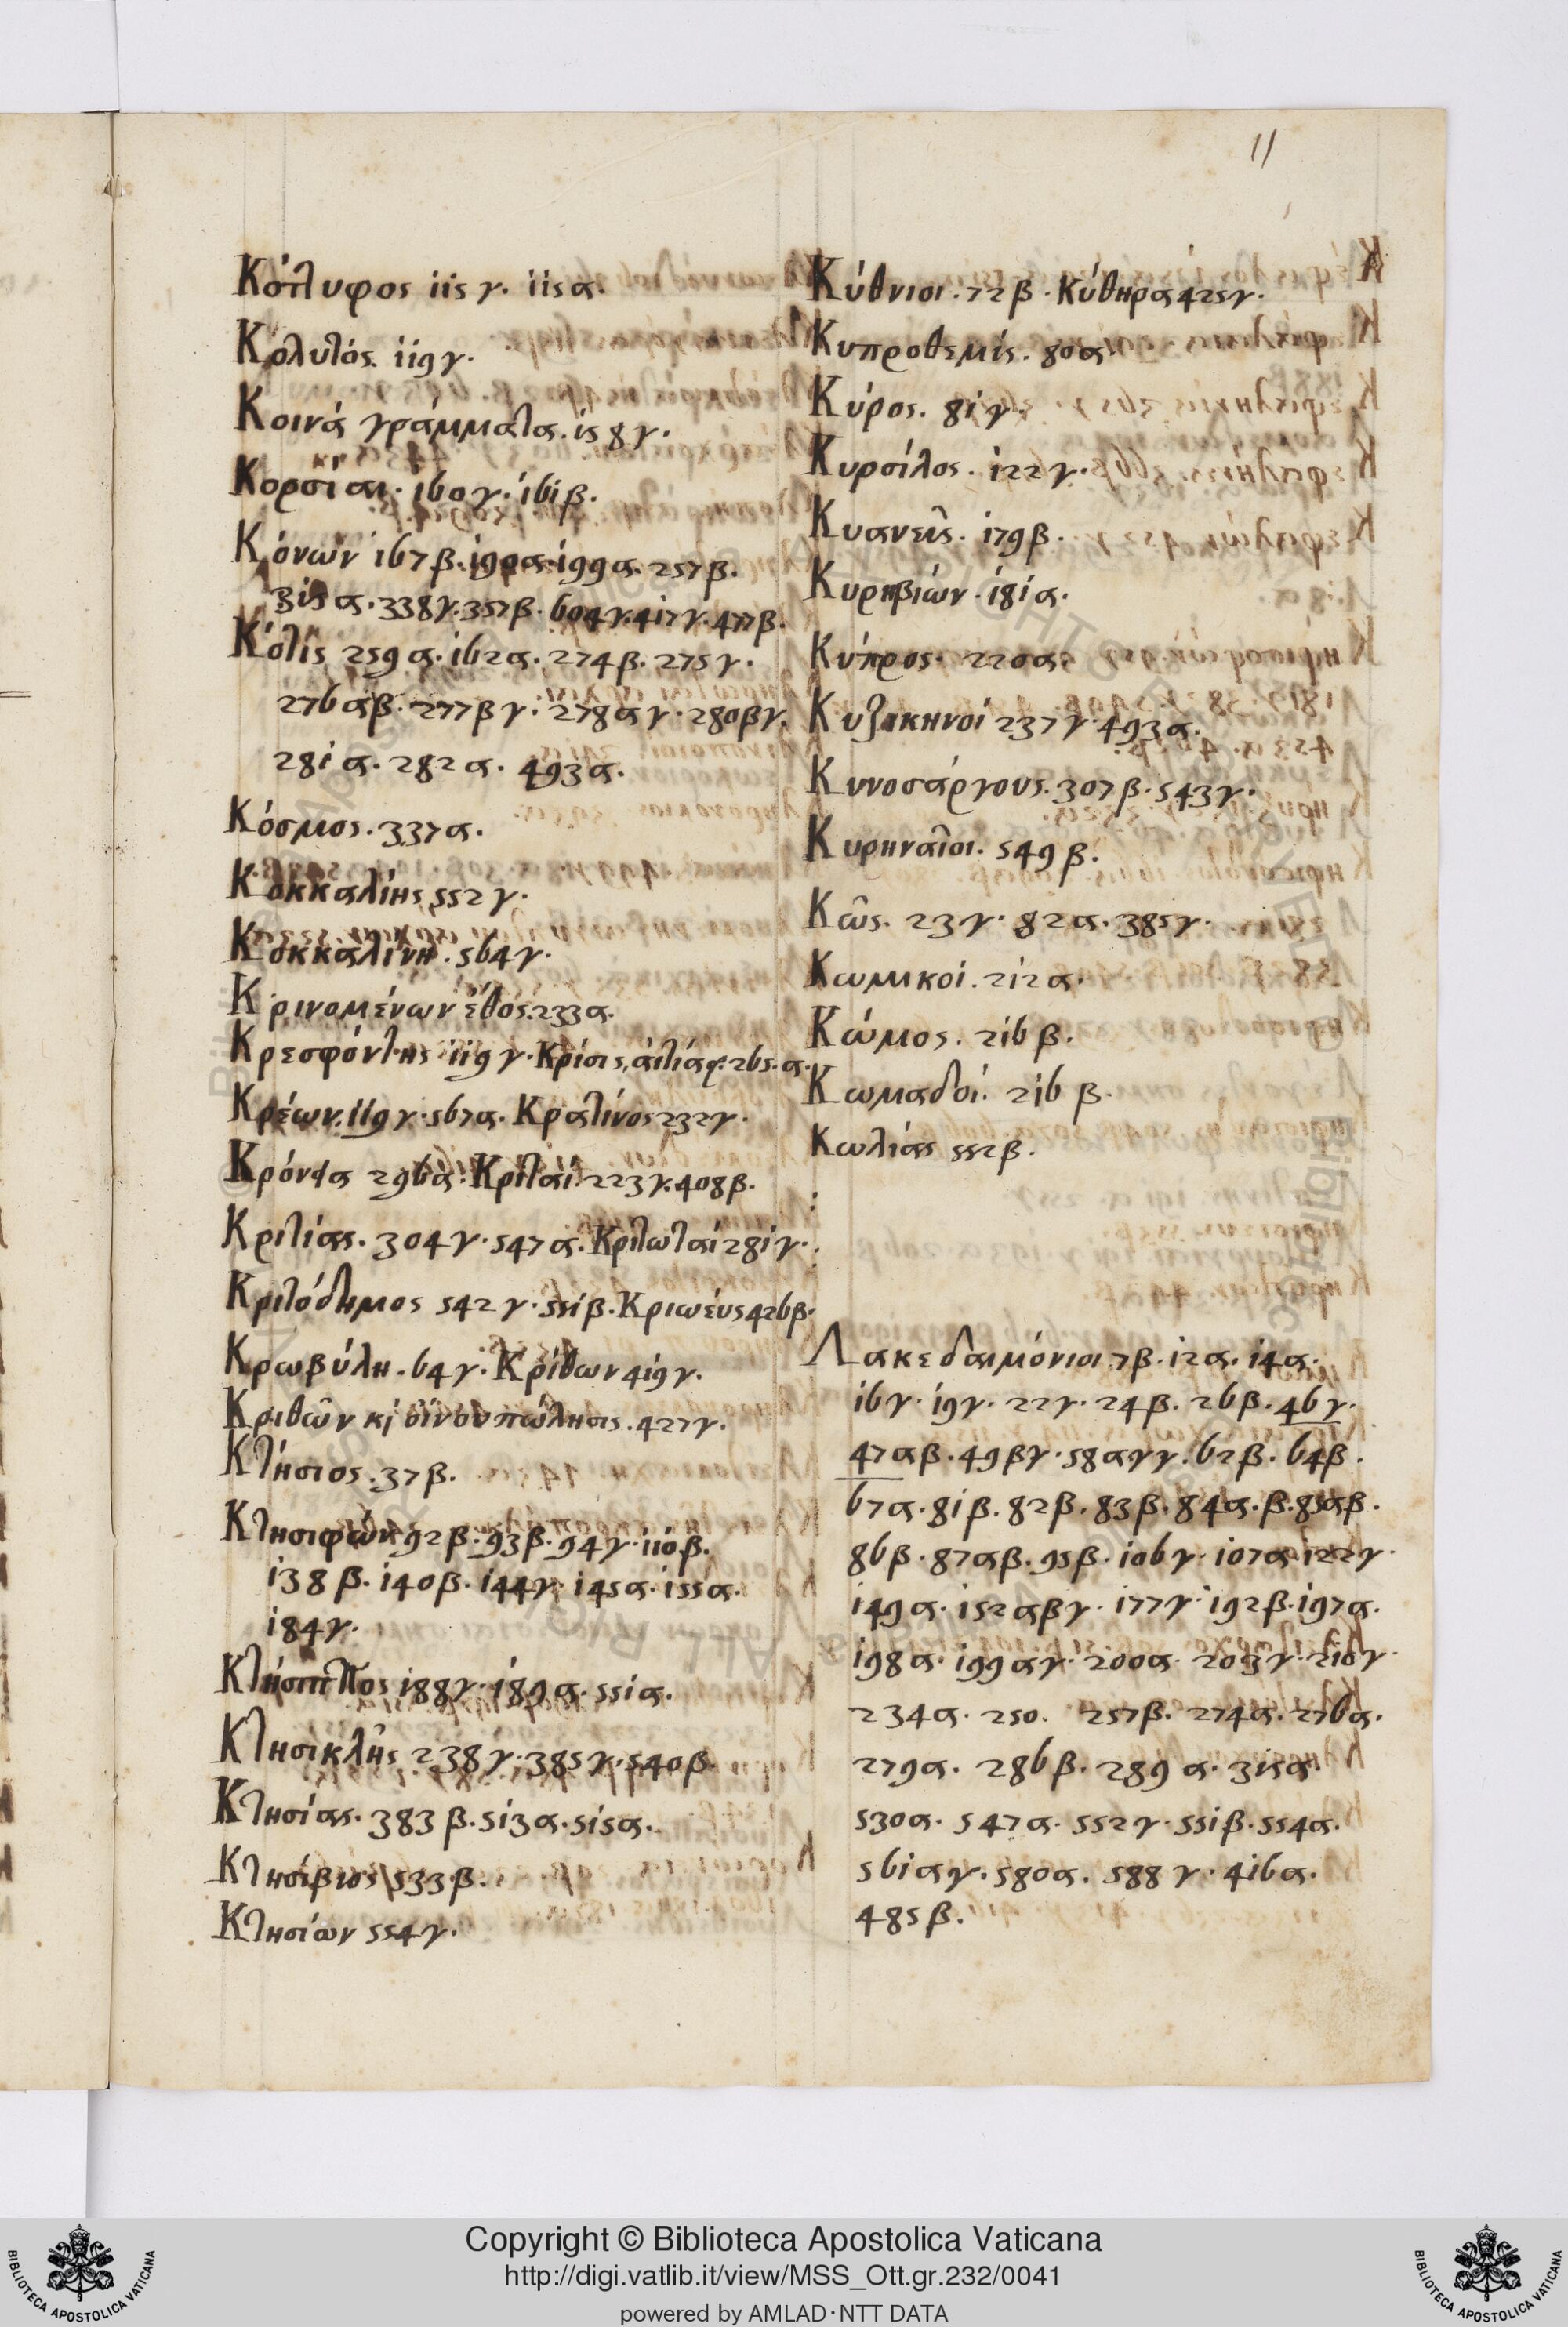 11
Κότλυφος 115 γ. 115 α.
Κολυτός. 119 γ.
Κοινά γράμματα. 158 γ.
Κορσίαι. 160 γ. 161 β.
Κόνων 167 β. 190 α. 199 α. 257 β.
315 α. 338 γ. 357 β. 604 γ. 417 γ. 477 β.
Κότις 259 α. 162 α. 274 β. 275 γ.
276 αβ. 277 β γ. 278 α γ. 280 βγ.
281 α. 282 α. 493 α.
Κόσμος. 337 α.
Κοκκαλίης 552 γ.
Κοκκαλίνη. 564 γ.
Κρινομένων ἔθος. 233 α.
Κρεσφόντης 119 γ. Κρίσις, 265. α.
Κρέων. 119 γ. 567 α. Κρατίνος 232 γ.
296 α. Κριταί. 223 γ. 408 β.
Κριτίας. 304 γ. 547 α. Κριτωταί 281 γ.
Κριτόδημος 542 γ. 551 β. Κριωεύς 426 β.
Κρωβύλη. 64 γ. Κρίθων 419 γ.
Κριθῶν κὶ οἴνου πώλησις. 427 γ.
Κτήσιος. 37 β.
Κτησιφῶν 92 β. 93 β. 94 γ. 110 β.
138 β. 140 β. 144 γ. 145 α. 155 α.
184 γ.
Κτήσιππος 188 γ. 189 α. 551 α.
Κτησικλῆς 238 γ. 385 γ. 540 β.
Κτησίας. 383 β. 513 α. 515 α.
Κτησίβιος 533 β.
Κτησίων 554 γ.
Κύθνιοι. 72 β. Κύθηρα 425 γ.
Κυπροθεμίς. 80 α
Κύρος. 81 γ.
Κυρσίλος. 122 γ.
Κυανεῖς. 179 β.
Κυρηβιών. 181 α.
Κύπρος. 220 α.
Κυζικηνοί 237 γ. 493 α.
Κυνοσάργους. 307 β. 543 γ.
Κυρηναῖοι. 549 β.
Κῶς. 23 γ. 82 α. 385 γ.
Κωμικοί. 212 α.
Κώμος. 216 β.
Κωμαδοί. 216 β.
Κωλιάς 552 β.
Λακεδαιμόνιοι 7 β. 12 α. 14 α.
16 γ. 19 γ. 22 γ. 24 β. 26 β. 46 γ.
47 αβ. 49 βγ. 58 αγγ. 62 β. 64 β.
67 α. 81 β. 82 β. 83 β. 84 α. β. 85 αβ.
86 β. 87 αβ. 95 β. 106 γ. 107 α 122 γ.
149 α. 152 αβγ. 177 γ. 192 β. 197 α.
198 α. 199 αγ. 200 α. 203 γ. 210 γ.
234 α. 250. 257 β. 274 α. 276 α.
279 α. 286 β. 289 α. 315 α.
530 α. 547 α. 552 γ. 551 β. 554 α.
561 αγ. 580 α. 588 γ. 416 α.
485 β.
Copyright © Biblioteca Apostolica Vaticana
http://digi.vatlib.it/view/MSS_Ott.gr.232/0041
powered by AMLAD·NTT DATA
BIBLIOTECA APOSTOLICA VATICANA
BIBLIOTECA APOSTOLICA VATICANA